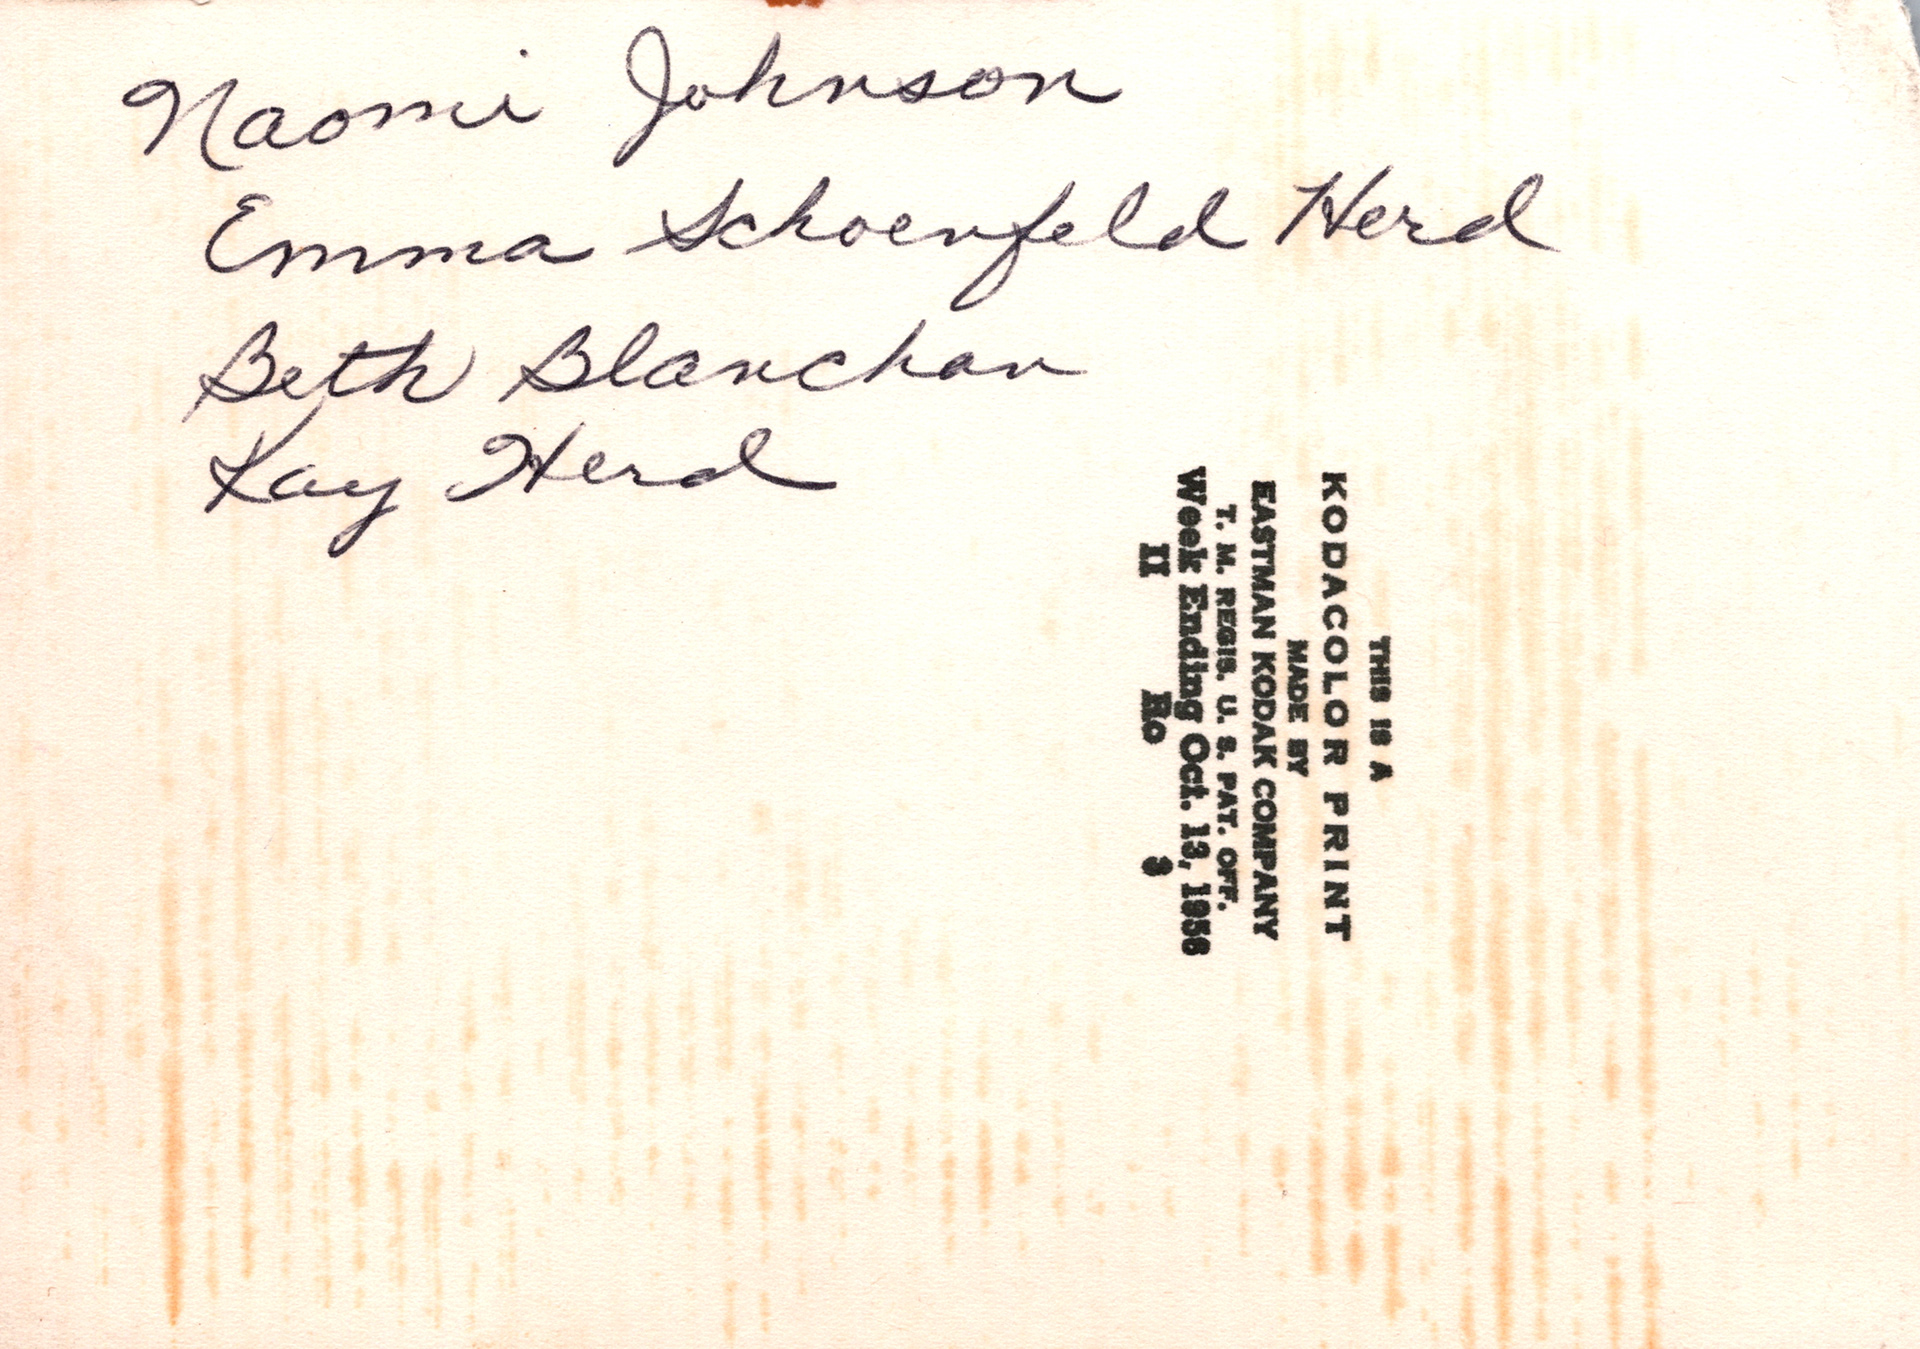 Naomi Johnson
Emma Schoenfeld Herd
Beth Blanchan
Kay Herd
THIS IS A
KODACOLOR PRINT
MADE BY
EASTMAN KODAK COMPANY
T. M. REGIS. U. S. PAT. OFF.
Week Ending Oct. 13, 1956
II Ro 3